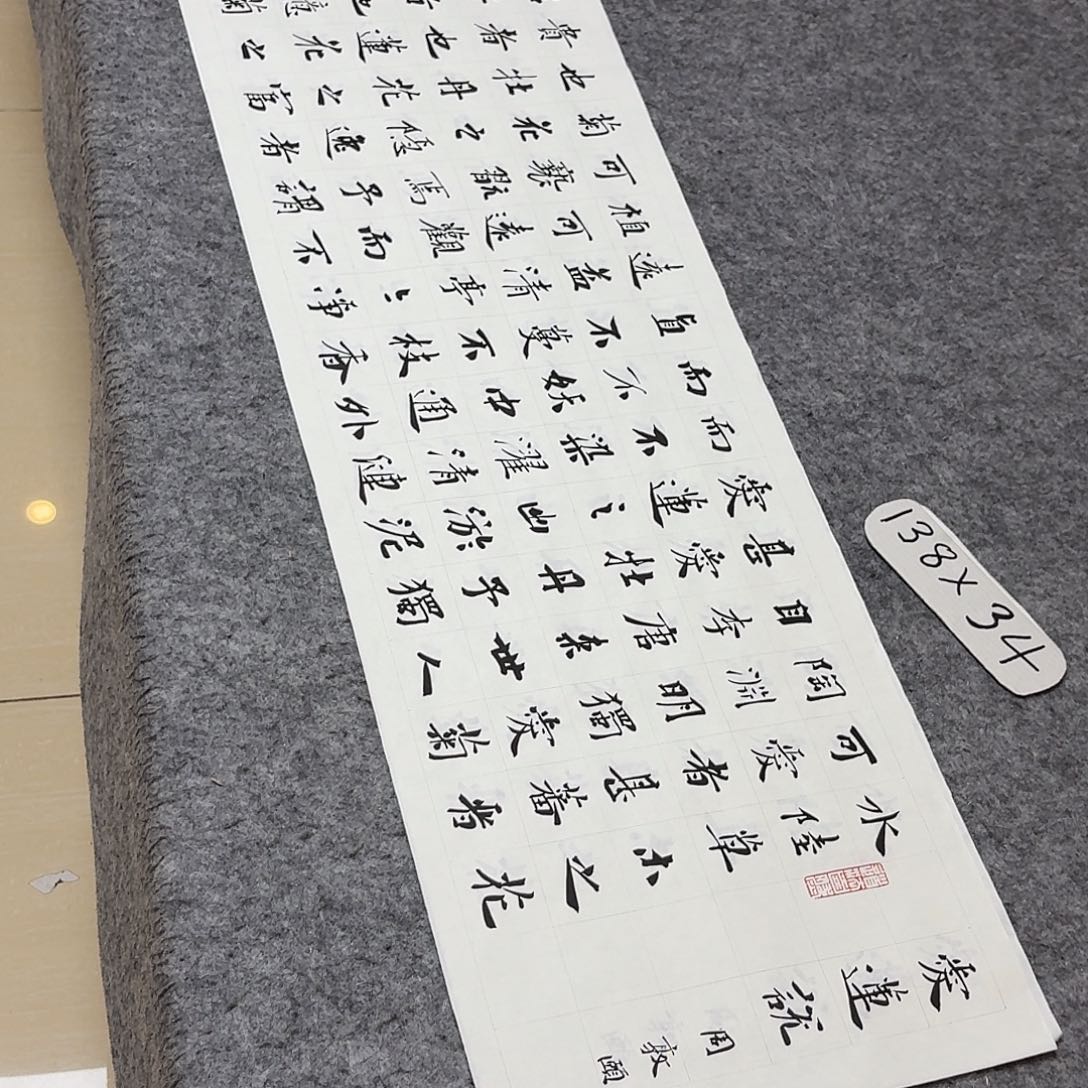 愛蓮說
周敦頤
水陸草木之花
可愛者甚蕃晉
陶淵明獨愛菊
自李唐來世人
甚愛牡丹予獨
愛蓮之出淤泥
而不染濯清漣
而不妖中通外
直不蔓不枝香
遠益清亭亭淨
植可遠觀而不
可褻翫焉予謂
菊花之隱逸者
也牡丹花之富
貴者也蓮花之
也噫菊
138×34